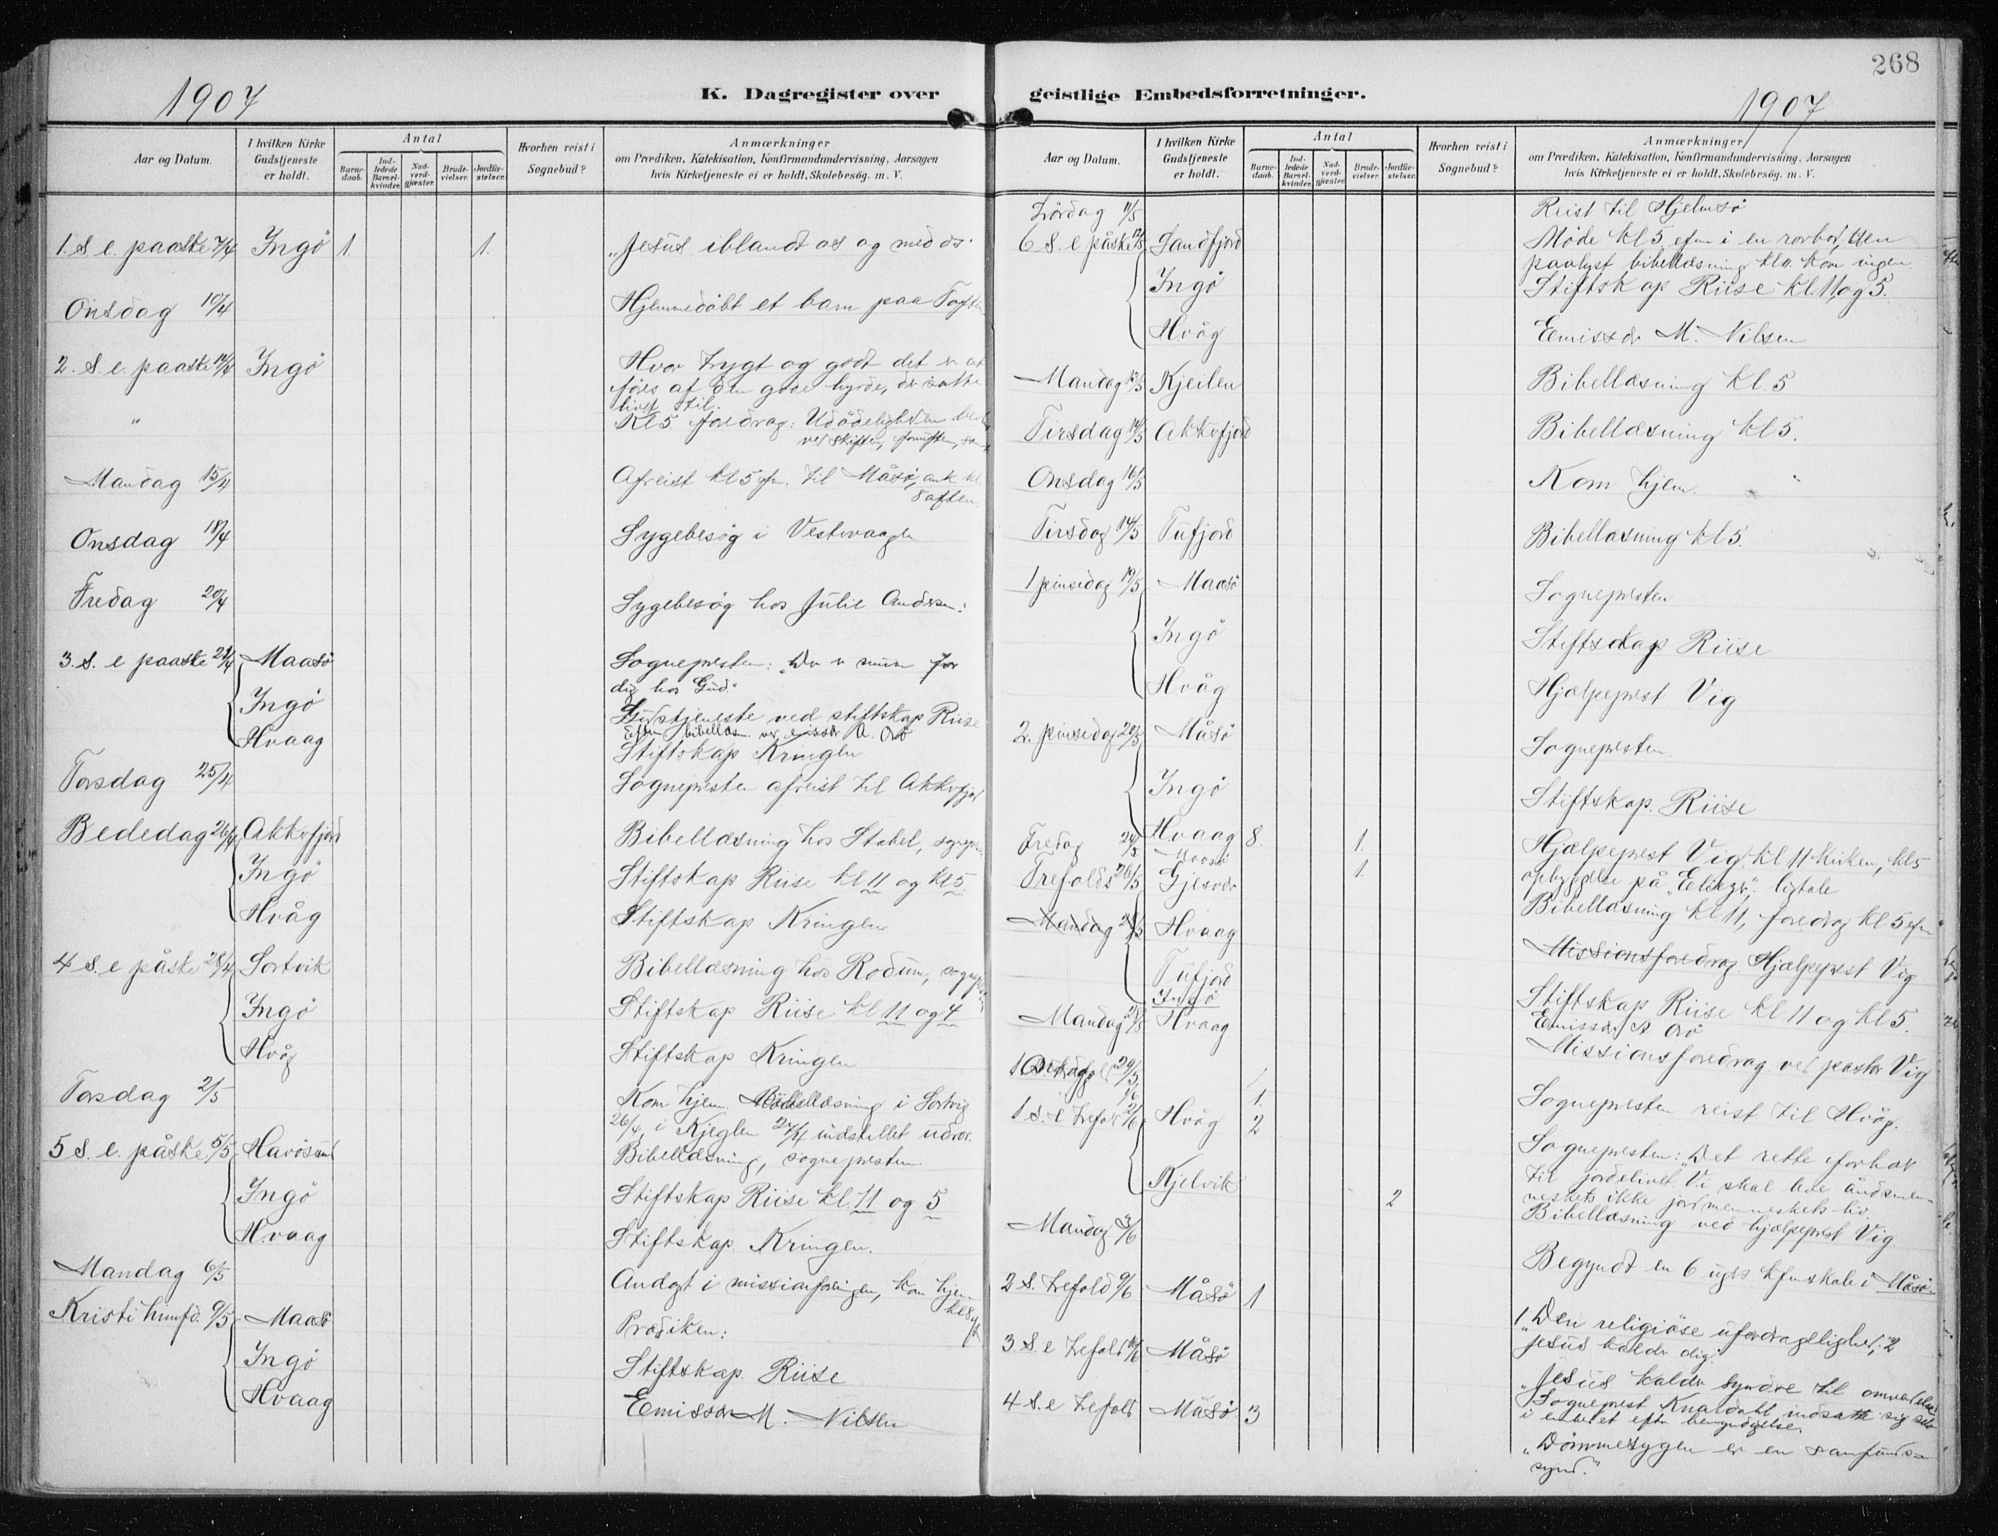 1907
K. Dagregister over
Aar og Datum.
I hvilken Kirke Gudstjeneste er holdt.
Antal
Barnedaab.
Indledede Barselkvinder.
Nadverdgjæster.
Brudevielser.
Jordfæstelser.
Hvorhen reist i Sognebud?
Anmærkninger
om Prædiken, Katekisation, Konfirmandundervisning, Aarsagen
hvis Kirketjeneste ei er holdt, Skolebesøg. m. V.
1. S. e. paaske 7/4 Ingø 1. 1. "Jesus iblandt os og med os"
Onsdag 10/4 Hjemmedøbt et barn paa
2. S. e. paaske 14/4 Ingø Hvor trygt og godt det er at
føres af den gode hyrde, der satte
livet til.
" Kl 5 foredrag: Udødeligheden
ved skiften, fornuften,
Mandag 15/4 Afreist kl 5 efm. til Måsø, ank kl
8 aften
Onsdag 18/4 Sygebesøg i Vestervaagen
Fredag 20/4 Sygebesøg hos Julie Andersen.
3. S. e paaske 21/4 Maasø Sognepresten: "Du er min for
dig hos Gud."
Ingø Gudstjeneste ved stiftskap Riise
Efter bibellæsn. ved emissær A. Orø
Hvaag Stiftskap Kringlen
Torsdag 25/4 Sognepresten afreist til Akkefjord
Bededag 26/4 Akkefjord Bibellæsning hos Stabel, sognepr.
Ingø Stiftskap Riise kl 11 og kl 5.
Hvåg Stiftskap Kringlen
4 S. e påske 28/4 Sortvik Bibellæsning hos Rodum,
Ingø Stiftskap Riise kl 11 og 4
Hvåg Stiftskap Kringlen
Torsdag 2/5 Kom hjem. Bibellæsning i Sortvig
26/4, i Kjeglen 27/4 indstillet
5 S. e. påske 5/5 Havøsund Bibellæsning, sognepresten
Ingø Stiftskap Riise kl. 11 og 5
Hvaag Stiftskap Kringlen.
Mandag 6/5 Andagt i missionforeningen, kom hjem
kl 8
Kristi himfd. 9/5 Maasø Prædiken:
Ingø Stiftskap. Riise
Hvaag Emissær M. Nilsen
268
1907
geistlige Embedsforretninger.
Aar og Datum.
I hvilken Kirke Gudstjeneste er holdt.
Antal
Barnedaab.
Indledede Barselkvinder.
Nadverdgjæster.
Brudevielser.
Jordfæstelser.
Hvorhen reist i Sognebud?
Anmærkninger
om Prædiken, Katekisation, Konfirmandundervisning, Aarsagen
hvis Kirketjeneste ei er holdt, Skolebesøg. m. V.
Lördag 11/5 Reist til Hjelmsø
6 S. e påske 12/5 Sandfjord Møde kl 5 efm i en rorbod, den
paalyst bibellæsning kl 11. kom ingen
Ingø Stiftskap Riise kl. 11 og 5.
Hvåg Emissær M. Nilsen
Mandag 13/5 Kjeilen Bibellæsning kl. 5
Tirsdag 14/5 Akkefjord Bibellæsning kl 5.
Onsdag 16/5 Kom hjem.
Tirsdag 14/5 Tufjord Bibellæsning kl 5.
1 pinsedag 19/5 Maasø Sognepresten
Ingø Stiftskap Riise
Hvåg Hjælpeprest Vig
2. pinsedag 20/5 Måsø Sognepresten.
Ingø Stiftskap. Riise
Hvaag 8. 1. Hjælpeprest Vig kl 11 kirken, kl 5
Fredag 24/5 Maasø
Trefolds 26/5 Gjesvær 1. opbyggelse på "Eliezer", ligtale
Bibellæsning kl 11, foredrag kl 5 efm
Mandag Hvaag Missionsforedrag. Hjælpeprest Vig
Tufjord
Ingø Stiftskap Riise kl 11 og kl 5.
Emissær A Orø
Mandag Hvaag Missionsforedrag ved pastor Vig
29/5 Sognepresten reist til Hvåg.
1.
1 S. e trefold 2/6 Hvåg 2 Sognepresten: "Det rette forhold
til jordelivet Vi skal leve
ikke jordmenneskets liv.
Kjelvik 2 Bibellæsning ved hjælpeprest Vig
Mandag 3/6 Begyndt en 6 ugers kfmskole i Måsø
2 S. trefold 9/6 Måsø 1 1 "Den religiøse ufordragelighet, 2
Jesus kalder dig."
3 S. e trefold 16/6 Måsø "Jesus kalder syndere til omvendelse"
4 S. e trefold Måsø 3 Sogneprest Knaldahl indsatte sig selv
i embetet efter bemyndigelse.
"Dømmesygen er en samfunds-
synd."